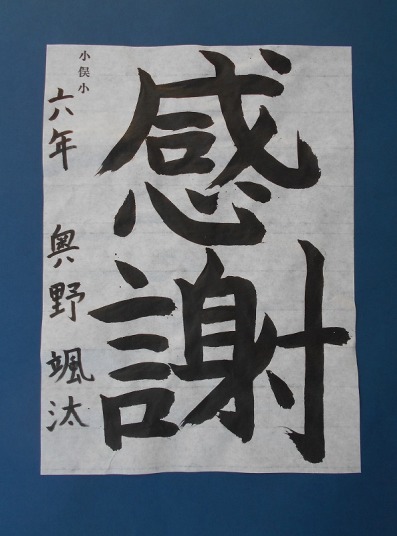 感謝
小俣小
六年 奥野颯汰